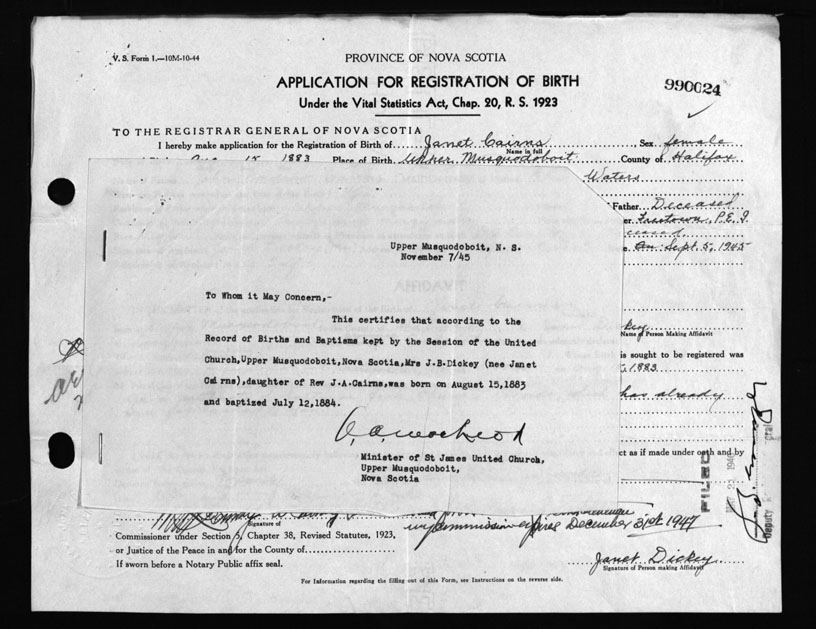 V. S. Form 1.—10M-10-44
PROVINCE OF NOVA SCOTIA
APPLICATION FOR REGISTRATION OF BIRTH
990024
Under the Vital Statistics Act, Chap. 20, R. S. 1923
TO THE REGISTRAR GENERAL OF NOVA SCOTIA
I hereby make application for the Registration of Birth of Janet Cairns Sex female
Name in full
15 1883 Place of Birth Upper Musquodoboit County of Halifax
Waters
Father Deceased
Freetown, P.E.I.
on Sept. 5, 1945
Upper Musquodoboit, N. S.
November 7/45
To Whom it May Concern,-
This certifies that according to the
Record of Births and Baptisms kept by the Session of the United
Church,Upper Musquodoboit,Nova Scotia,Mrs J.B.Dickey (nee Janet
Cairns),daughter of Rev J.A.Cairns,was born on August 15,1883
and baptized July 12,1884.
Minister of St James United Church,
Upper Musquodoboit,
Nova Scotia
Name of Person Making Affidavit
is sought to be registered was
1883
has already
ct as if made under oath and by
FILED
Deputy
Signature of
my commission expires December 31st 1947
Commissioner under Section 5, Chapter 38, Revised Statutes, 1923,
or Justice of the Peace in and for the County of
If sworn before a Notary Public affix seal.
Janet Dickey
Signature of Person making Affidavit
For Information regarding the filling out of this Form, see Instructions on the reverse side.